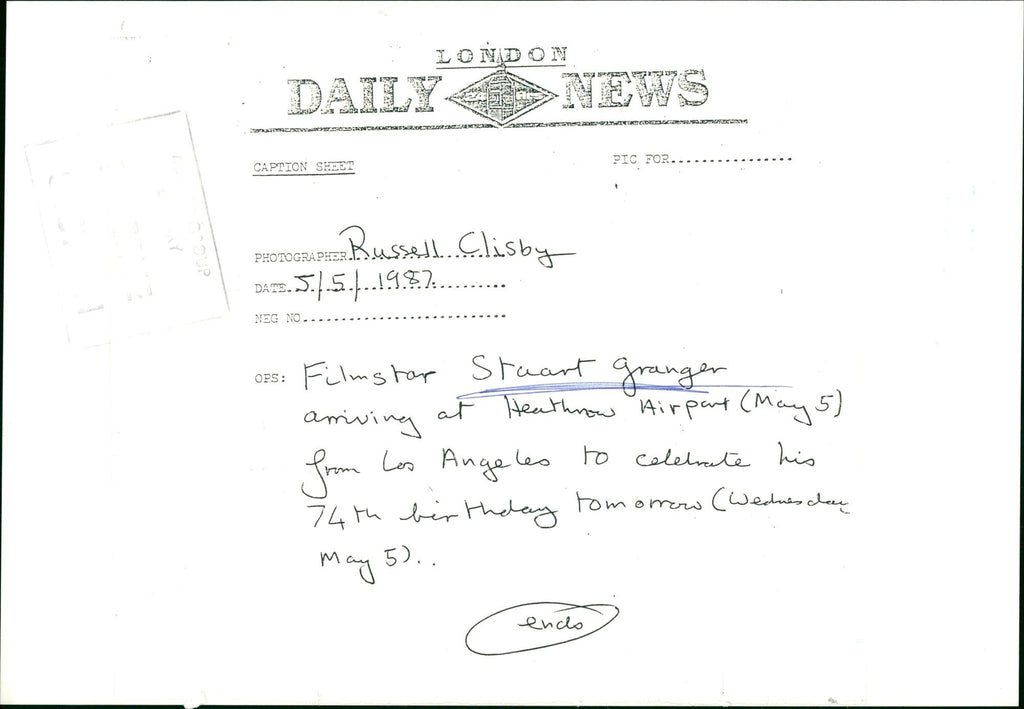 LONDON
DAILY NEWS
CAPTION SHEET
PIC FOR................
PHOTOGRAPHER Russell Clisby
DATE. 5/5/1987
NEG NO...........................
OPS: Filmstar Stuart Granger
arriving at Heathrow Airport (May 5)
from Los Angeles to celebrate his
74th birthday tomorrow (Wednesday
May 5)..
ends